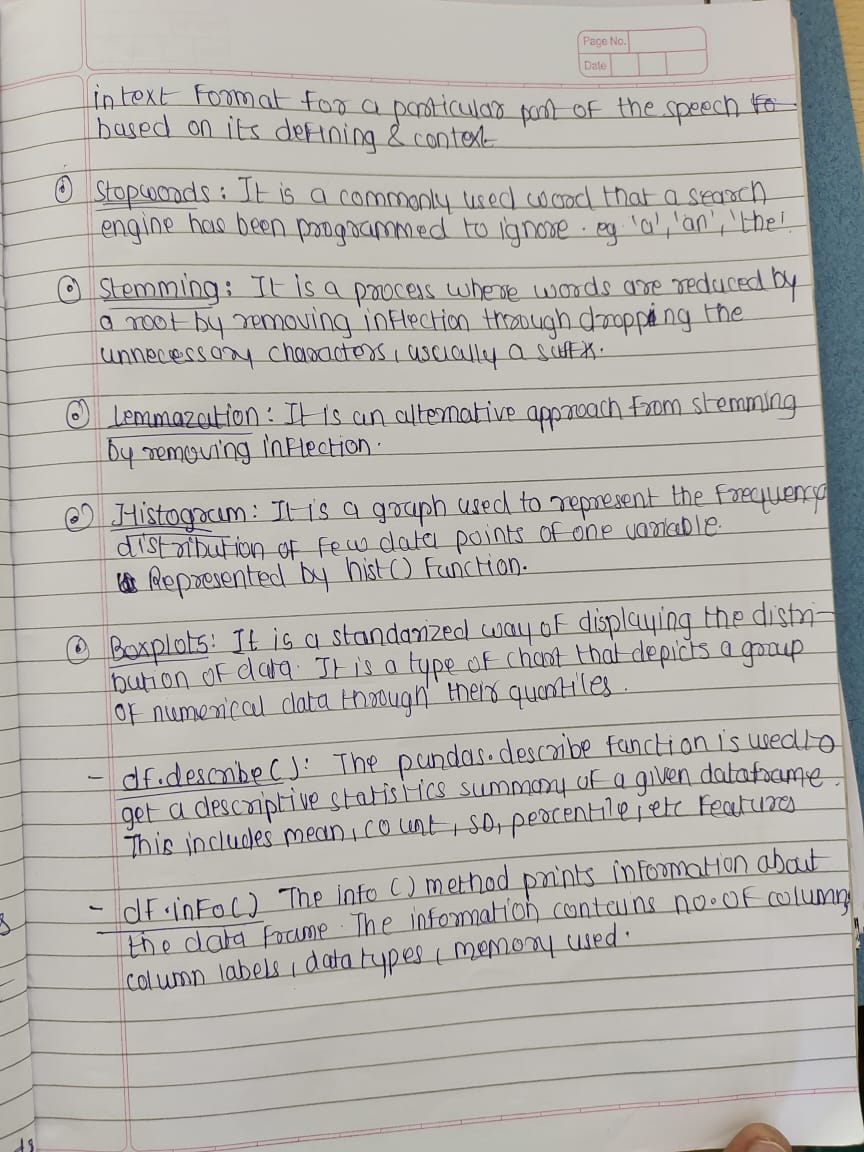 Page No.
Date
in text Format for a particular part of the speech to
based on its defining & context
Stopwords : It is a commonly used word that a search
engine has been programmed to ignore. eg 'a', 'an', 'the'.
Stemming : It is a process where words are reduced by
a root by removing inflection through dropping the
unnecessary characters, uscially a suffx.
Lemmazation : It is an alternative approach from stemming
by removing inflection.
Histogram : It is a graph used to represent the frequency
distribution of few data points of one variable.
Represented by hist() Function.
Boxplots : It is a standarized way of displaying the distri-
bution of data. It is a type of chart that depicts a group
of numerical data through their quantiles.
- df.describe() : The pandas.describe function is used to
get a descriptive statistics summary of a given dataframe.
This includes mean, count, SD, percentile, etc features
- df.info() The info () method prints information about
the data frame. The information contains no. of column
column labels, data types, memory used.